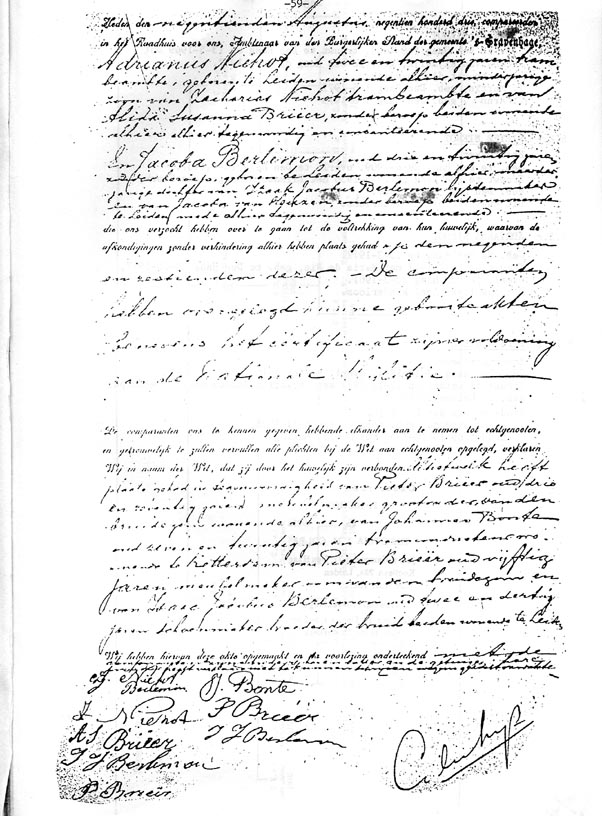 -59-
Heden den negentienden Augustus negentien honderd drie, compareerden
in het Raadhuis voor ons, Ambtenaar van den Burgerlijken Stand der gemeente 's-Gravenhage,
Adrianus Niehot, oud twee en twintig jaren, tram
beambte, geboren te Leiden, wonende alhier, minderjarige
zoon van Zacharias Niehot, trambeambte en van
Alida Susanna Brieër, zonder beroep, beiden wonende
alhier, alhier tegenwoordig en consenteerende
En Jacoba Berlemon, oud drie en twintig jaren,
zonder beroep, geboren te Leiden, wonende alhier, meerder
jarige dochter van Izaak Jacobus Berlemon,
en van Jacoba van zonder beroep, beiden wonende
te Leiden, mede alhier tegenwoordig en consenteerende
die ons verzocht hebben over te gaan tot de voltrekking van hun huwelijk, waarvan de
afkondigingen zonder verhindering alhier hebben plaats gehad op den negenden
en zestienden dezer. De comparanten
hebben overgelegd hunne geboorteakten
benevens het certificaat zijner voldoening
aan de Nationale Militie.
De comparanten ons te kennen gegeven hebbende elkander aan te nemen tot echtgenooten,
en getrouwelijk te zullen vervullen alle plichten bij de Wet aan echtgenooten opgelegd, verklaren
Wij in naam der Wet, dat zij door het huwelijk zijn verbonden. Hetwelk heeft
plaats gehad in tegenwoordigheid van Pieter Brieër, oud drie
en zeventig jaren, meubelmaker, grootvader van den
bruidegom, wonende alhier, van Johannes Bonte
oud zeven en twintig jaren, wo
nende te Rotterdam, van Pieter Brieër, oud vijftig
jaren, meubelmaker, oom van den bruidegom en
van Izaac Jacobus Berlemon, oud twee en dertig
jaren, schoenmaker, broeder der bruid, beiden wonende te Leiden
Wij hebben hiervan deze akte opgemaakt en na voorlezing onderteekend met de
Niehot
Berlemon J. Bonte
Z Niehot P Brieër
A S Brieër I J Berlemon
I J Berlemon
P Brieër